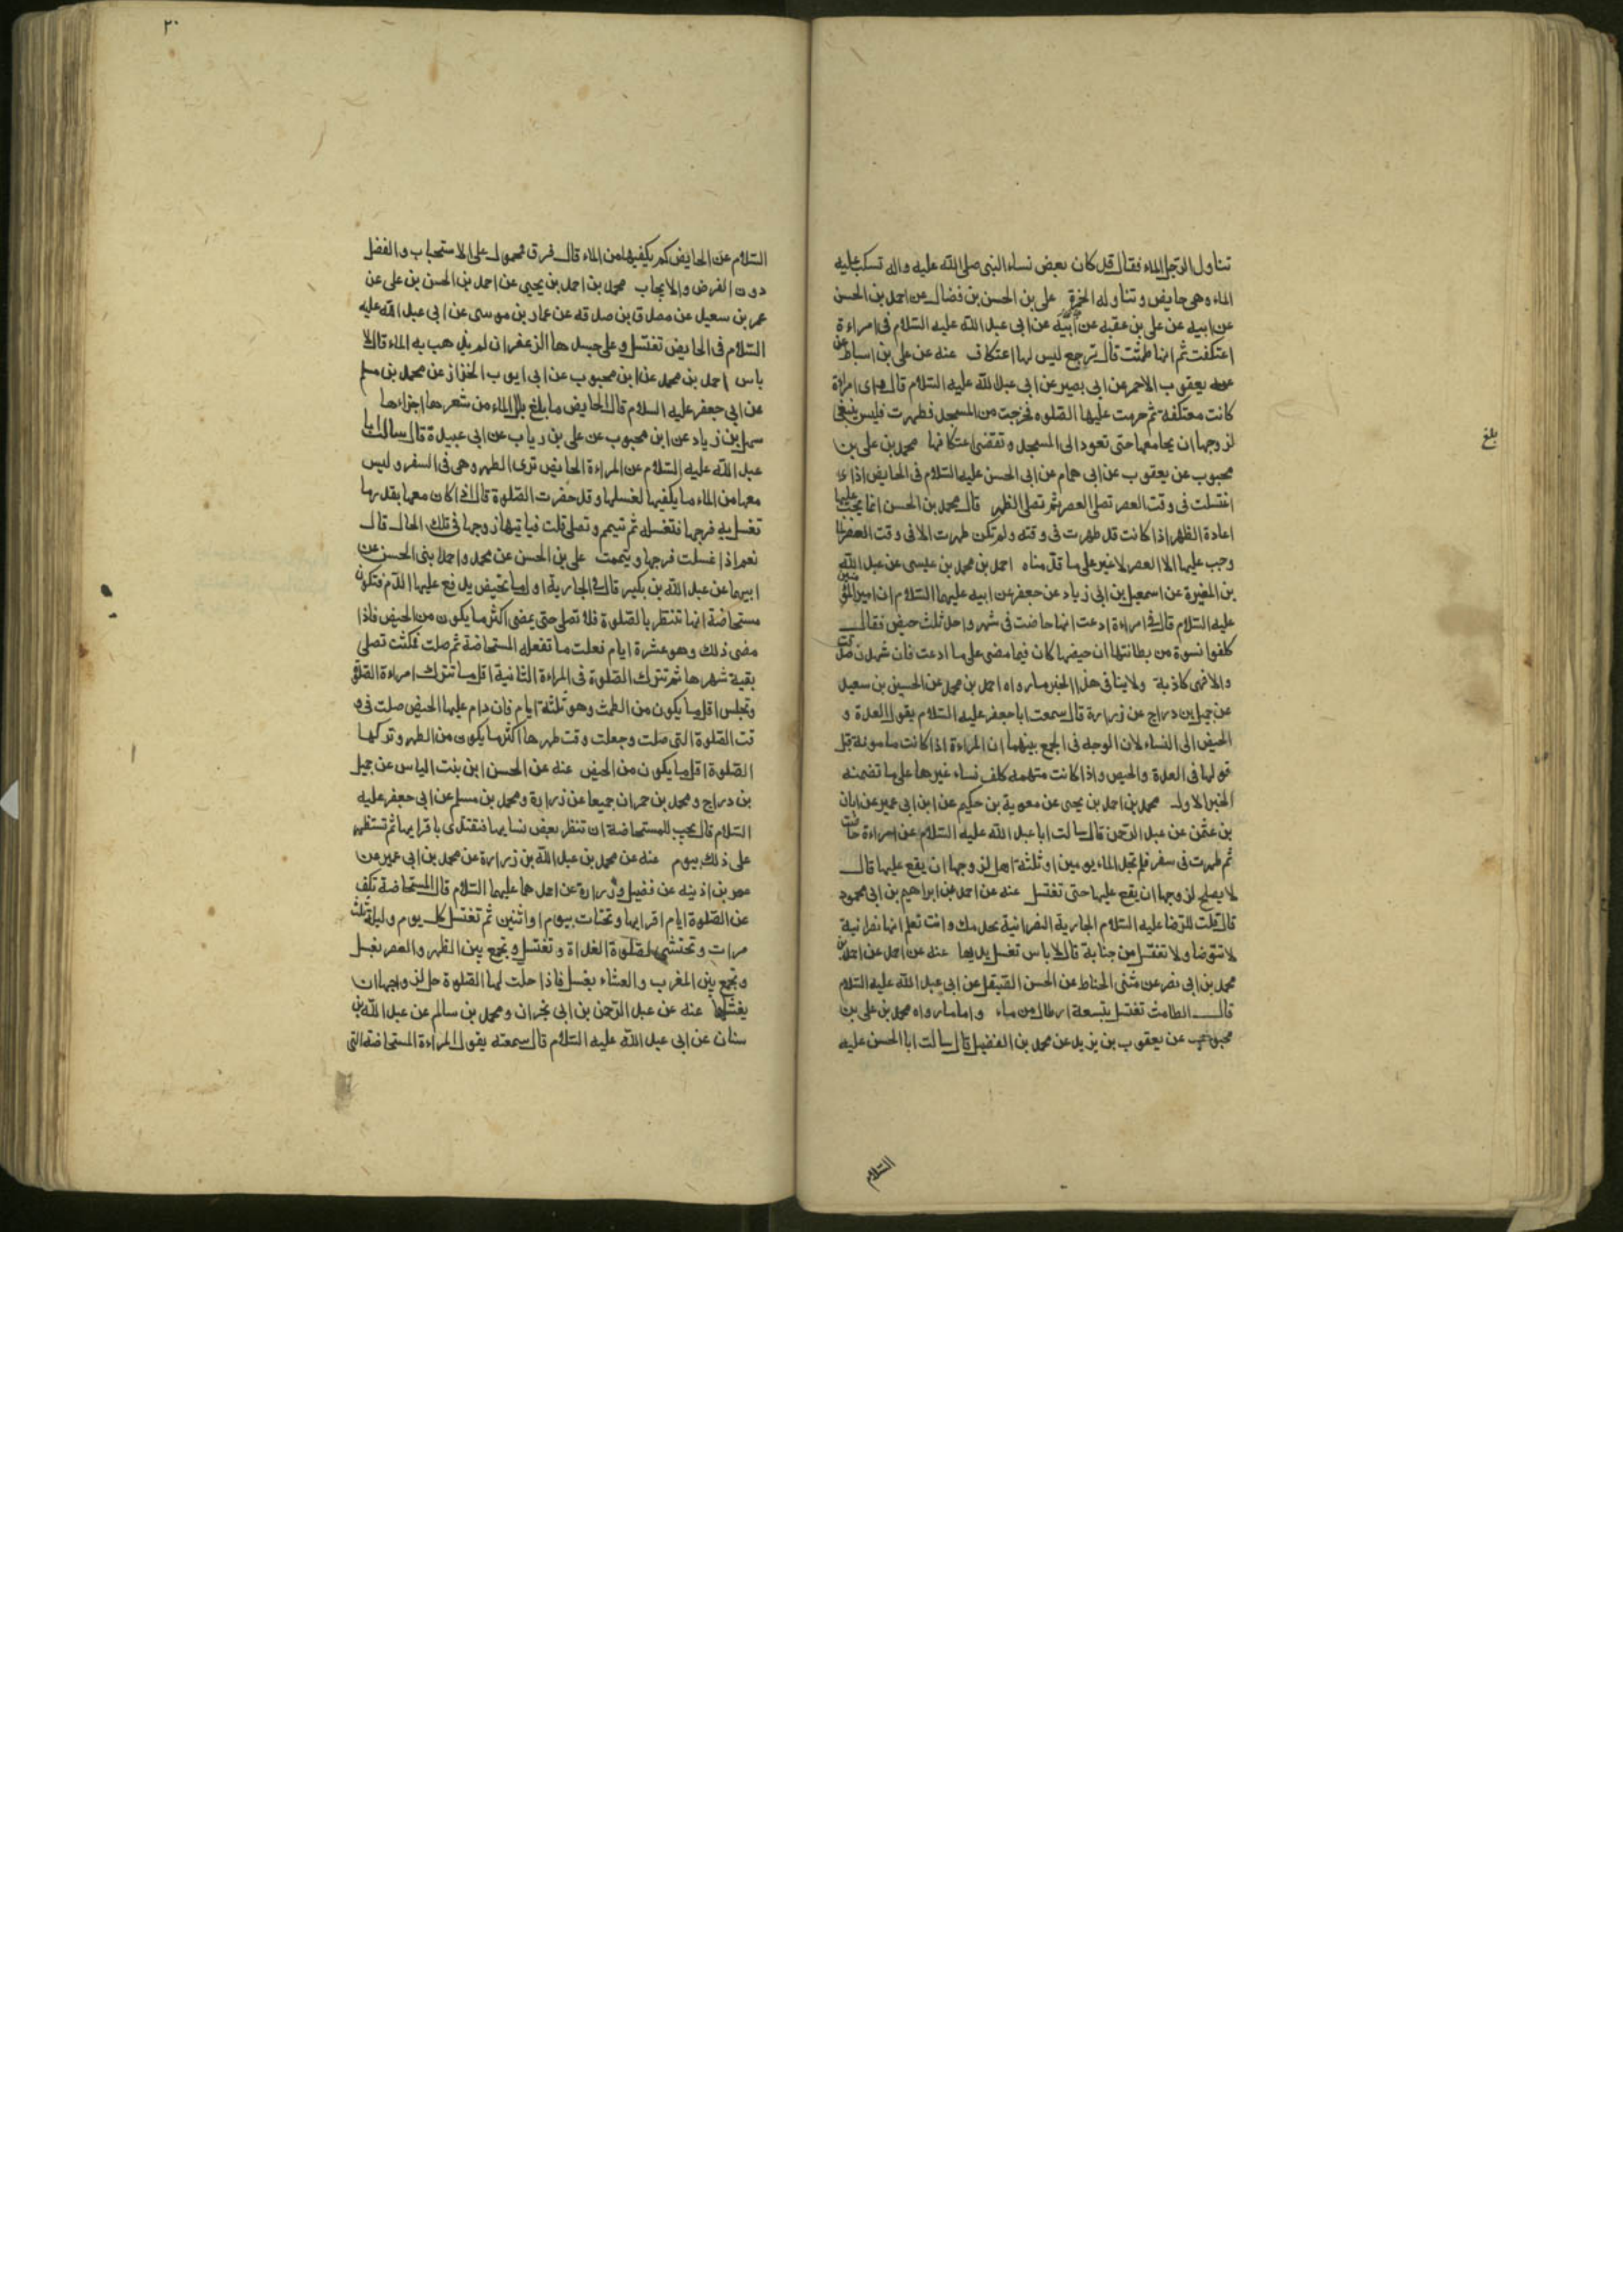 تتناول الرجل الماء فقال قد كان بعض نساء النبي صلى الله عليه واله تسكب عليه
الماء وهي حايض وتناوله الخمرة علي بن الحسن بن فضال عن احمد بن الحسن
عن ابيه عن علي بن عقبه عن ابيه عن ابي عبد الله عليه السلام في امراءة
اعتكفت ثم انها طمثت قال ترجع ليس لها اعتكاف عنه عن علي بن اسباط عن
عمه يعقوب الاحمر عن ابي بصير عن ابي عبد الله عليه السلام قال واى امراة
كانت معتكفة ثم حرمت عليها الصلوه فخرجت من المسجد فطهرت فليس ينبغي
لزوجها ان يجامعها حتى تعود الى المسجد وتقضى اعتكافها محمد بن علي بن
محبوب عن يعقوب عن ابي همام عن ابي الحسن عليه السلام في الحايض اذا
اغتسلت في وقت العصر تصلي العصر ثم تصلي الظهر قال محمد بن الحسن انما يجب عليها
اعادة الظهر اذا كانت قد طهرت في وقته ولم تكن طهرت الا في وقت العصر لما
وجب عليها الا العصر لا غير على ما قدمناه احمد بن محمد بن عيسى عن عبد الله
بن المغيرة عن اسمعيل بن ابي زياد عن جعفر عن ابيه عليهما السلام ان امير المؤمنين
عليه السلام قال في امراءة ادعت انها حاضت في شهر واحد ثلث حيض فقال
كلفوا نسوة من بطانتها ان حيضها كان فيما مضى على ما ادعت فان شهدن صدقت
والا فهي كاذبة ولا ينافي هذا الخبر ما رواه احمد بن محمد عن الحسين بن سعيد
عن جميل بن دراج عن زرارة قال سمعت ابا جعفر عليه السلام يقول العدة و
الحيض الى النساء لان الوجه في الجمع بينهما ان المراءة اذا كانت مامونة قبل
قولها في العدة والحيض واذا كانت متهمه كلف نساء غيرها على ما تضمنه
الخبر الاول محمد بن احمد بن يحيى عن معوية بن حكيم عن ابن ابي عمير عن ابان
بن عثمن عن عبد الرحمن قال سالت ابا عبد الله عليه السلام عن امراءة حاضت
ثم طهرت في سفر فلم تجد الماء يومين او ثلثة اهل لزوجها ان يقع عليها قال
لا يصلح لزوجها ان يقع عليها حتى تغتسل عنه عن احمد عن ابراهيم بن ابي محمود
قال قلت للرضا عليه السلام الجارية النصرانية تخدمك وانت تعلم انها نصرانية
لا تتوضا ولا تغتسل من جنابة قال لا باس تغسل يديها عنه عن احمد عن احمد بن
محمد بن ابي نصر عن مثنى الحناط عن الحسن الصيقل عن ابي عبد الله عليه السلام
قال الطامث تغتسل بتسعة ارطال من ماء واما ما رواه محمد بن علي بن
محبوب عن يعقوب بن يزيد عن محمد بن الفضيل قال سالت ابا الحسن عليه
السلام
بلغ
٢٠
السلام عن الحايض كم يكفيها من الماء قال فرق فمحمول على الاستحباب والفضل
دون الفرض والايجاب محمد بن احمد بن يحيى عن احمد بن الحسن بن علي عن
عمر بن سعيد عن مصدق بن صدقه عن عمار بن موسى عن ابي عبد الله عليه
السلام في الحايض تغتسل وعلى جسدها الزعفران لم يذهب به الماء قال لا
باس احمد بن محمد عن ابن محبوب عن ابي ايوب الخزاز عن محمد بن مسلم
عن ابي جعفر عليه السلام قال الحايض ما بلغ بلل الماء من شعرها اجزاءها
سهل بن زياد عن ابن محبوب عن علي بن رياب عن ابي عبيدة قال سالت ابا
عبد الله عليه السلام عن المراءة الحايض ترى الطهر وهي في السفر وليس
معها من الماء ما يكفيها لغسلها وقد حضرت الصلوة قال اذا كان معها بقدر ما
تغسل به فرجها فتغسله ثم تتيمم وتصلي قلت فياتيها زوجها في تلك الحال قال
نعم اذا غسلت فرجها وتيممت علي بن الحسن عن محمد واحمد ابني الحسن عن
ابيهما عن عبد الله بن بكير قال في الجارية اول ما تحيض يدفع عليها الدم فتكون
مستحاضة انها تنتظر بالصلوة فلا تصلي حتى يمضى اكثر ما يكون من الحيض فاذا
مضى ذلك وهو عشرة ايام فعلت ما تفعله المستحاضة ثم صلت فمكثت تصلي
بقية شهرها ثم تترك الصلوة في المراءة الثانية اقل ما تترك امراءة الصلوة
وتجلس اقل ما يكون من الطمث وهو ثلثة ايام فان دام عليها الحيض صلت في و
قت الصلوة التي صلت وجعلت وقت طهرها اكثر ما يكون من الطهر وتركها
الصلوة اقل ما يكون من الحيض عنه عن الحسن ابن بنت الياس عن جميل
بن دراج ومحمد بن حمران جميعا عن زرارة ومحمد بن مسلم عن ابي جعفر عليه
السلام قال يجب للمستحاضة ان تنظر بعض نسايها فتقتدى باقرايها ثم تستظهر
على ذلك بيوم عنه عن محمد بن عبد الله بن زرارة عن محمد بن ابي عمير عن
عمر بن اذينه عن فضيل وزرارة عن احدهما عليهما السلام قال المستحاضة تكف
عن الصلوة ايام اقرايها وتحتاط بيوم او اثنين ثم تغتسل كل يوم وليلة ثلث
مرات وتحتشى لصلوة الغداة وتغتسل وتجمع بين الظهر والعصر بغسل
وتجمع بين المغرب والعشاء بغسل فاذا حلت لها الصلوة حل لزوجها ان
يغشاها عنه عن عبد الرحمن بن ابي نجران ومحمد بن سالم عن عبد الله بن
سنان عن ابي عبد الله عليه السلام قال سمعته يقول المراءة المستحاضة التي